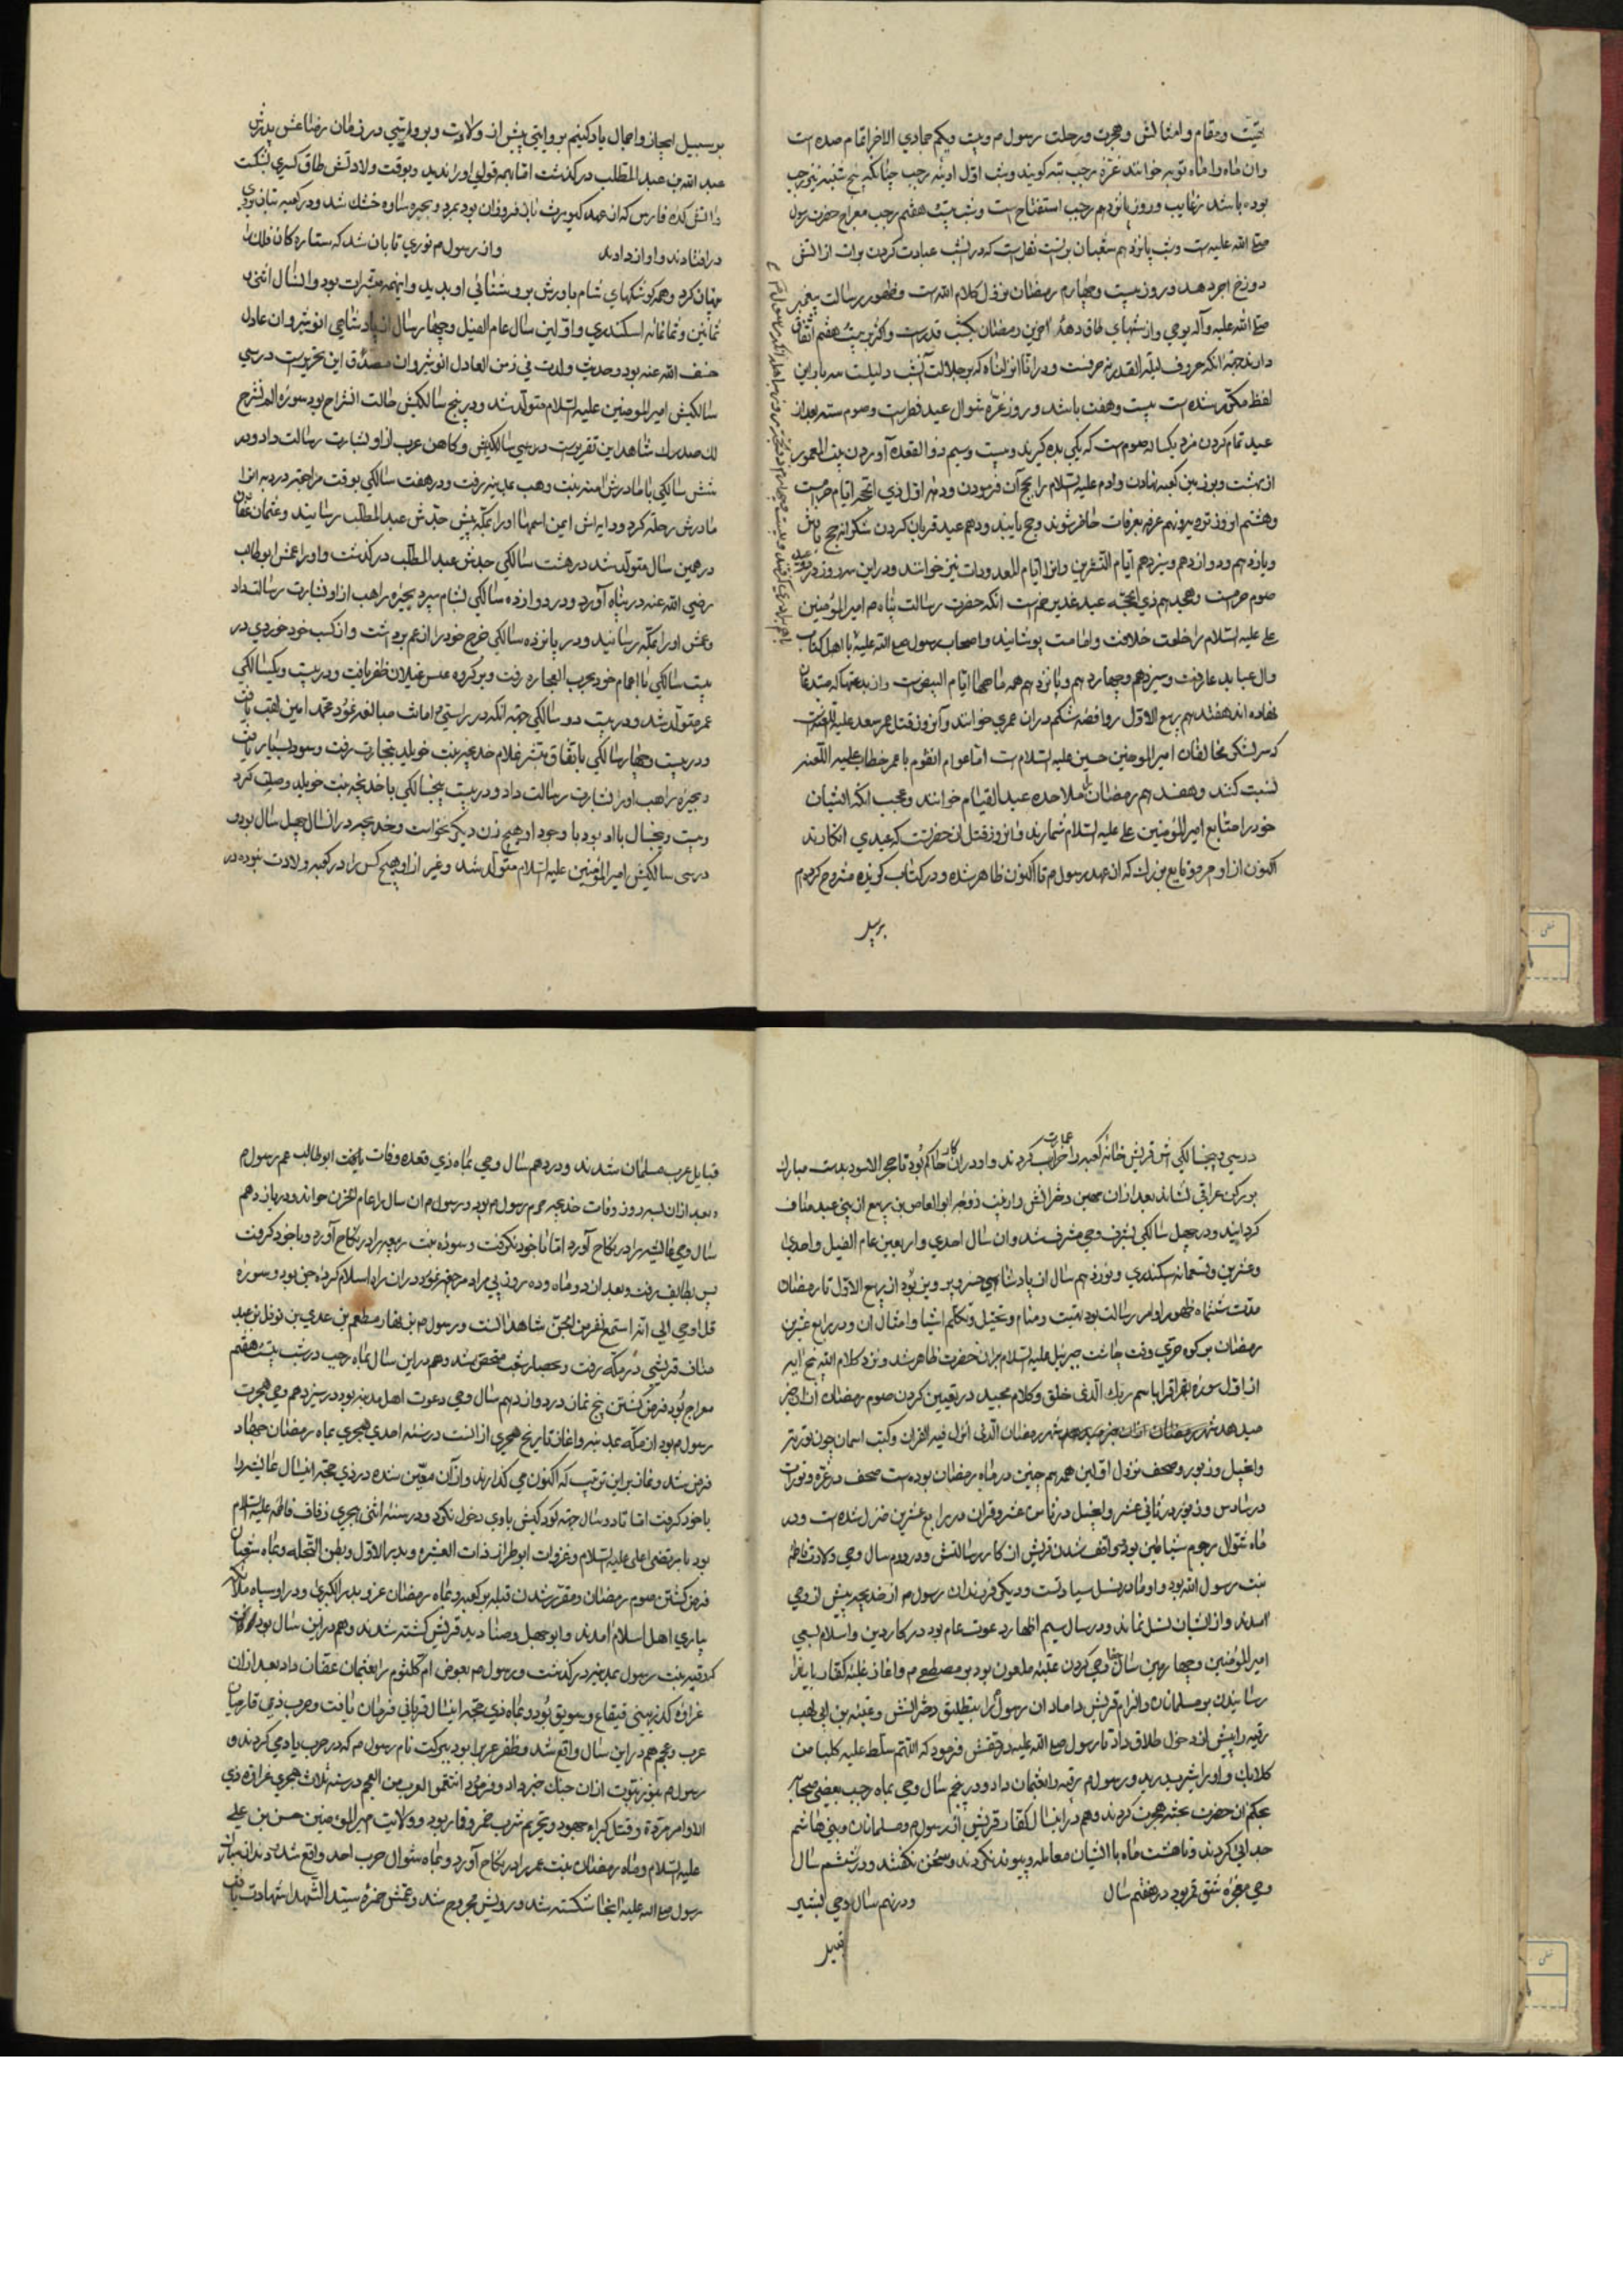 بیت ومقام وامثالش وهجرت ورحلت رسول م وبیت ویکم جمادی الاخر اتمام صده است
وان ماه را ماه توبه خوانند غرّهٔ رجب سه کویند وشب اول اوینه رجب چنانکه پنج شنبه نیز رجب
بوده باشد رغایب وروز پانزدهم رجب استفتاح است وشب بیست هفتم رجب معراج حضرت رسول
صلی الله علیه است وشب پانزدهم شعبان برات است که در انشب عبادت کردن برات از آتش
دوزخ اجر دهد وروز بیست وچهارم رمضان نزول کلام الله است وظهور رسالت پیغمبر
صلی الله علیه وآله بوحی واز شبهای طاق دههٔ اخرین رمضان یکشب قدرست واکثر بر بیست هفتم اتفاق
دارند جهة آنکه حروف لیلة القدر نه حرفست ودر انا انزلناه که بر جلالت آنشب دلیلست سه بار این
لفظ مکرر شده است بیست وهفت باشد وروز غرّه شوال عید فطرست وصوم سته بعد از
عید تمام کردن مزد یکساله صوم است که یکی بده کیرند وبیست وسیم ذو القعده آوردن بیت المعمور
از بهشت وبر زمین کعبه نهادن وادم علیه السلام را بحج آن فرمودن ودهه اول ذی الحجه ایام حرامست
وهشتم او روز ترویه ونهم عرفه بعرفات حاضر شوند وحج یابند ودهم عید قربان کردن شکرانه حج
ویازدهم ودوازدهم وسیزدهم ایام التشریق وانرا ایام المعدودات نیز خوانند ودر این سه روز ودر عید
صوم حرامست وهجدهم ذی الحجه عید غدیر خم است انکه حضرت رسالت پناه م امیر المؤمنین
علی علیه السلام را خلعت خلافت وامامت پوشانید واصحاب رسول صلع الله علیه با اهل کتاب
وال عبا بدعا رفت وسیزدهم وچهاردهم وپانزدهم همه ماهها ایام البیض است وان بدعتها که مبتدعان
نهاده اند هفدهم ربیع الاول روافضه شکم دران عمری خوانند وآن روز قتل عمر سعد علیه اللعنه است
که سر لشکر مخالفان امیر المومنین حسین علیه السلام است اما عوام انقوم با عمر خطاب علیه اللعنه
نسبت کنند وهفدهم رمضان را ملاحده عید القیام خوانند وعجب انکه ایشان
خود را متابع امیر المؤمنین علی علیه السلام شمارند وان روز قتل آن حضرتست که عیدی انکارند
اکنون از اوامر ووقایع بزرک که از عهد رسول م تا اکنون ظاهر شده ودر کتاب کزیده مشروح کردم
بر سبیل
بر سبیل ایجاز واجمال یاد کنیم بروایتی پیش از ولادت وبروایتی در زمان رضاعش پدرش
عبد الله بن عبد المطلب در کذشت اما بهمه قولی او را ندید وبوقت ولادتش طاق کسری بشکست
واتش کدهٔ فارس که از عهد کیومرث تا ان فروزان بود بمرد وبحیره ساوه خشک شد ودر کعبه بتان بروی
در افتادند واواز دادند وان رسول م نوری تابان شد که ستاره کان فلک را
پنهان کرد وهمه کوشکهای شام مادرش بروشنائی او بدید واینهمه مبشرات بود وانسال اثنی و
ثمانین وثمانمائه اسکندری واولین سال عام الفیل وچهار سال از پادشاهی انوشیروان عادل
خفف الله عنه بود وحدیث ولدت فی زمن العادل انوشیروان مصدّق این تحریرست درسی
سالکیش امیر المومنین علیه السلام متولد شد ودر پنج سالکیش حالت انشراح بود سورهٔ الم نشرح
لک صدرک شاهد این تقریرست درسی سالکیش وکاهن عرب از او بشارت رسالت داد ودر
شش سالکی با مادرش امنه بنت وهب بمدینه رفت ودر هفت سالکی بوقت مراجعه در ره ابوا
مادرش رحلت کرد ودایه اش ایمن اسمها او را بمکه پیش جدش عبد المطلب رسانید وعثمان عفان
در همین سال متولد شد در هشت سالکی جدش عبد المطلب در کذشت واو را عمش ابو طالب
رضی الله عنه در پناه آورد ودر دوازده سالکی بشام میبرد بحیره راهب از او بشارت رسالت داد
وعمش او را بمکه رسانید ودر پانزده سالکی خرج خود را از عم برداشت واز کسب خود خوردی در
بیست سالکی با اعمام خود بحرب الفجاره رفت وبر کروه عیس غیلان ظفر یافت ودر بیست ویکسالکی
عمر متولد شد ودر بیست دو سالکی جهة آنکه در راستی وامانت مبالغه نمود محمد امین لقب یافت
ودر بیست وچهار سالکی باتفاق میسره غلام خدیجه بنت خویلد بتجارت رفت وسود بسیار یافت
وبحیره راهب او را بشارت رسالت داد ودر بیست پنجسالکی با خدیجه بنت خویلد وصلت کرد
وبیست وپنجسال با او بود با وجود او هیچ زن دیکر نخواست وخدیجه در انسال چهل سال بود و
درسی سالکیش امیر المؤمنین علیه السلام متولد شد وغیر از او هیچ کس را در کعبه ولادت نبوده در
درسی وپنجسالکی اش قریش خانه کعبه را خراب کردند عمارت واو دران کار حاکم بود تا حجر الاسود بدست مبارک
بر رکن عراقی نشاند بعد از ان مهین دخترانش را زینب زوجه ابو العاص بن ربیع از بنی عبد مناف
کردانید ودر چهل سالکی بشرف وحی مشرف شد وان سال احدی واربعین عام الفیل واحدی
وعشرین وتسعمائه سکندری ونوزدهم سال از پادشاهی خسرو پرویز بود از ربیع الاول تا رمضان
مدت ششماه ظهور اوامر رسالت بود بهیبت ومنام وتخیل وتکلم اشیا وامثال ان ودر رابع عشرین
رمضان بر کوه حری وقت چاشت جبرئیل علیه السلام بران حضرت ظاهر شد ونزد کلام الله پنج ایه
از اول سوره اقرا اقرا باسم ربک الذی خلق وکلام مجید در تعیین کردن صوم رمضان ازان خبر
میدهد شهر رمضان الذی انزل فیه القران وکتب اسمان چون توریة
وانجیل وزبور وصحف نزول اولین همه هم چنین در ماه رمضان بوده است صحف در غرّه وتورات
در سادس وزبور در ثانی عشر وانجیل در ثامن عشر وقران در رابع عشرین منزل شده است ودر
ماه شوال رجوم شیاطین بود وواقف شدن قریش از کار رسالتش ودر دوم سال وحی ولادت فاطمه
بنت رسول الله بود واو مادر نسل سیادتست ودیکر فرزندان رسول م از خدیجه پیش از وحی
امدند واز ایشان نسل نماند ودر سال سیم اظهار دعوت عام بود در کار دین واسلام بسعی
امیر المؤمنین وچهارمین سال وحی کردن عتبه ملعون بود بر مصطفی م واغاز غلبه کفار با یذا
رسانیدن بر مسلمانان والزام قریش دامادان رسول را بتطلیق دخترانش وعتبه بن ابی لهب
رقیه را پیش از دخول طلاق داد تا رسول صلع الله علیه در حقش فرمود که اللهم سلط علیه کلبا من
کلابک واو را شیر بدرید ورسول م رقیه را بعثمان داد ودر پنجم سال وحی بماه رجب بعضی صحابه
بحکم ان حضرت بحبشه هجرت کردند وهم در اینسال کفار قریش از رسول م ومسلمانان وبنی هاشم
جدائی کردند وتا هشت ماه با ایشان معامله وپیوند نکردند وسخن نکفتند ودر ششم سال
وحی معجزه شق قمر بود در هفتم سال ودر نهم سال وحی بیشتر
قبایل
قبایل عرب مسلمان شدند ودر دهم سال وحی بماه ذی قعده وفات یافت ابوطالب عم رسول م
وبعد ازان بسه روز وفات خدیجه حرم رسول م بود ورسول م ان سال را عام الحزن خواند ودر یازدهم
سال وحی عایشه را در نکاح آورد اما با خود نکرفت وسوده بنت زمعه را در نکاح آورد وبا خود کرفت
پس بطایف رفت وبعد ان دو ماه وده روز بی مراد مراجعه نمود دران راه اسلام کروه جن بود وسورهٔ
قل اوحی الی انه استمع نفر من الجن شاهد انست ورسول م بزنهار مطعم بن عدی بن نوفل بن عبد
مناف قریشی در مکه رفت وبحصار شعب متحصن شد وهم در این سال بماه رجب در شب بیست هفتم
معراج بود فرض کشتن پنج نماز در دوازدهم سال وحی دعوت اهل مدینه بود در سیزدهم وحی هجرت
رسول م بود از مکه بمدینه واغاز تاریخ هجری از انست در سنه احدی هجری بماه رمضان جهاد
فرض شد ونماز بر این ترتیب که اکنون می کذارند واذان معین شده در ذی حجه اینسال عایشه را
با خود کرفت اما تا دو سال جهة کودکیش با وی دخول نکرد ودر سنه اثنی هجری زفاف فاطمه علیه السلام
بود با مرتضی اعلی علیه السلام وغزوات ابوا طراف ذات العشره وبدر الاول وبطن النخله وبماه شعبان
فرض کشتن صوم رمضان ومقرر شدن قبله بر کعبه وبماه رمضان غزو بدر الکبری ودر او سپاه ملائکه
بیاری اهل اسلام امدند وابو جهل وصنادید قریش کشته شدند وهم در این سال بود
که رقیه بنت رسول بمدینه در کذشت ورسول م بعوض ام کلثوم را بعثمان عفان داد بعد ازان
غزاوة کدر وبنی قینقاع وسویق بود وبماه ذی حجه اینسال قربانی فرمان یافت وحرب ذی قار میان
عرب وعجم هم در این سال واقع شد وظفر عرب را بود ببرکت نام رسول م که در حرب یاد می کردند و
رسول م بنور نبوت ازان جنک خبر داد وفرمود انتقمو العرب من العجم در سنه ثلاث هجری غزاوه ذی
الاوامر وقردة وقتل کبراء جهود وتحریم شرب خمر وقمار بود وولادت امیر المؤمنین حسن بن علی
علیه السلام وماه رمضان بنت عمر را در نکاح آورد وبماه شوال حرب احد واقع شد دندان مبارک
رسول صلع الله علیه انجا شکسته شد ورویش مجروح شد وعمش حمزه سید الشهدا شهادت یافت